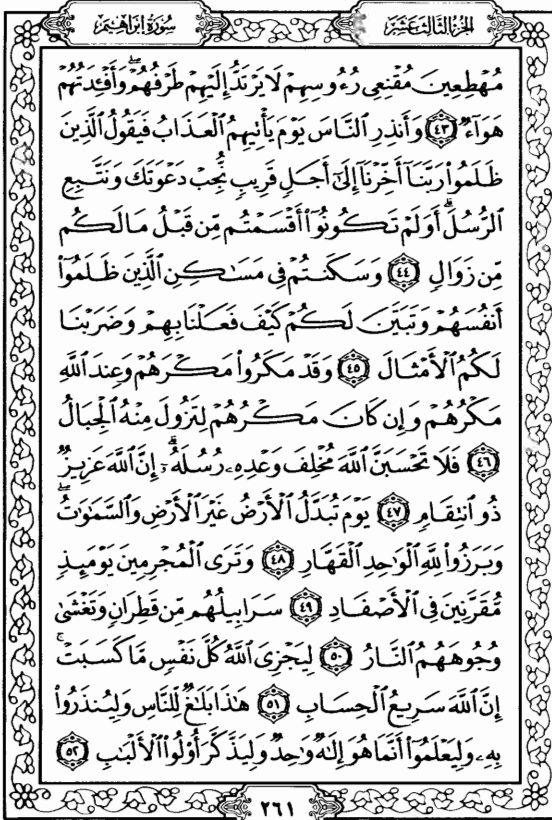 الجزء الثالث عشر
سورة إبراهيم
مُهْطِعِينَ مُقْنِعِى رُءُوسِهِمْ لَا يَرْتَدُّ إِلَيْهِمْ طَرْفُهُمْ ۖ وَأَفْـِٔدَتُهُمْ
هَوَآءٌ ﴿٤٣﴾ وَأَنذِرِ ٱلنَّاسَ يَوْمَ يَأْتِيهِمُ ٱلْعَذَابُ فَيَقُولُ ٱلَّذِينَ
ظَلَمُوا۟ رَبَّنَآ أَخِّرْنَآ إِلَىٰٓ أَجَلٍ قَرِيبٍ نُّجِبْ دَعْوَتَكَ وَنَتَّبِعِ
ٱلرُّسُلَ ۗ أَوَلَمْ تَكُونُوٓا۟ أَقْسَمْتُم مِّن قَبْلُ مَا لَكُم
مِّن زَوَالٍ ﴿٤٤﴾ وَسَكَنتُمْ فِى مَسَـٰكِنِ ٱلَّذِينَ ظَلَمُوٓا۟
أَنفُسَهُمْ وَتَبَيَّنَ لَكُمْ كَيْفَ فَعَلْنَا بِهِمْ وَضَرَبْنَا
لَكُمُ ٱلْأَمْثَالَ ﴿٤٥﴾ وَقَدْ مَكَرُوا۟ مَكْرَهُمْ وَعِندَ ٱللَّهِ
مَكْرُهُمْ وَإِن كَانَ مَكْرُهُمْ لِتَزُولَ مِنْهُ ٱلْجِبَالُ
﴿٤٦﴾ فَلَا تَحْسَبَنَّ ٱللَّهَ مُخْلِفَ وَعْدِهِۦ رُسُلَهُۥٓ ۗ إِنَّ ٱللَّهَ عَزِيزٌ
ذُو ٱنتِقَامٍ ﴿٤٧﴾ يَوْمَ تُبَدَّلُ ٱلْأَرْضُ غَيْرَ ٱلْأَرْضِ وَٱلسَّمَـٰوَٰتُ ۖ
وَبَرَزُوا۟ لِلَّهِ ٱلْوَٰحِدِ ٱلْقَهَّارِ ﴿٤٨﴾ وَتَرَى ٱلْمُجْرِمِينَ يَوْمَئِذٍ
مُّقَرَّنِينَ فِى ٱلْأَصْفَادِ ﴿٤٩﴾ سَرَابِيلُهُم مِّن قَطِرَانٍ وَتَغْشَىٰ
وُجُوهَهُمُ ٱلنَّارُ ﴿٥٠﴾ لِيَجْزِىَ ٱللَّهُ كُلَّ نَفْسٍ مَّا كَسَبَتْ ۚ
إِنَّ ٱللَّهَ سَرِيعُ ٱلْحِسَابِ ﴿٥١﴾ هَـٰذَا بَلَـٰغٌ لِّلنَّاسِ وَلِيُنذَرُوا۟
بِهِۦ وَلِيَعْلَمُوٓا۟ أَنَّمَا هُوَ إِلَـٰهٌ وَٰحِدٌ وَلِيَذَّكَّرَ أُو۟لُوا۟ ٱلْأَلْبَـٰبِ ﴿٥٢﴾
٢٦١